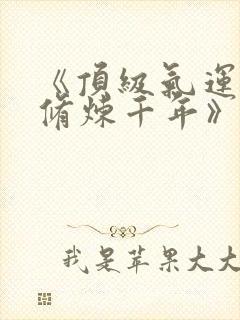 《頂級氣運
脩煉千年》
我是苹果大大